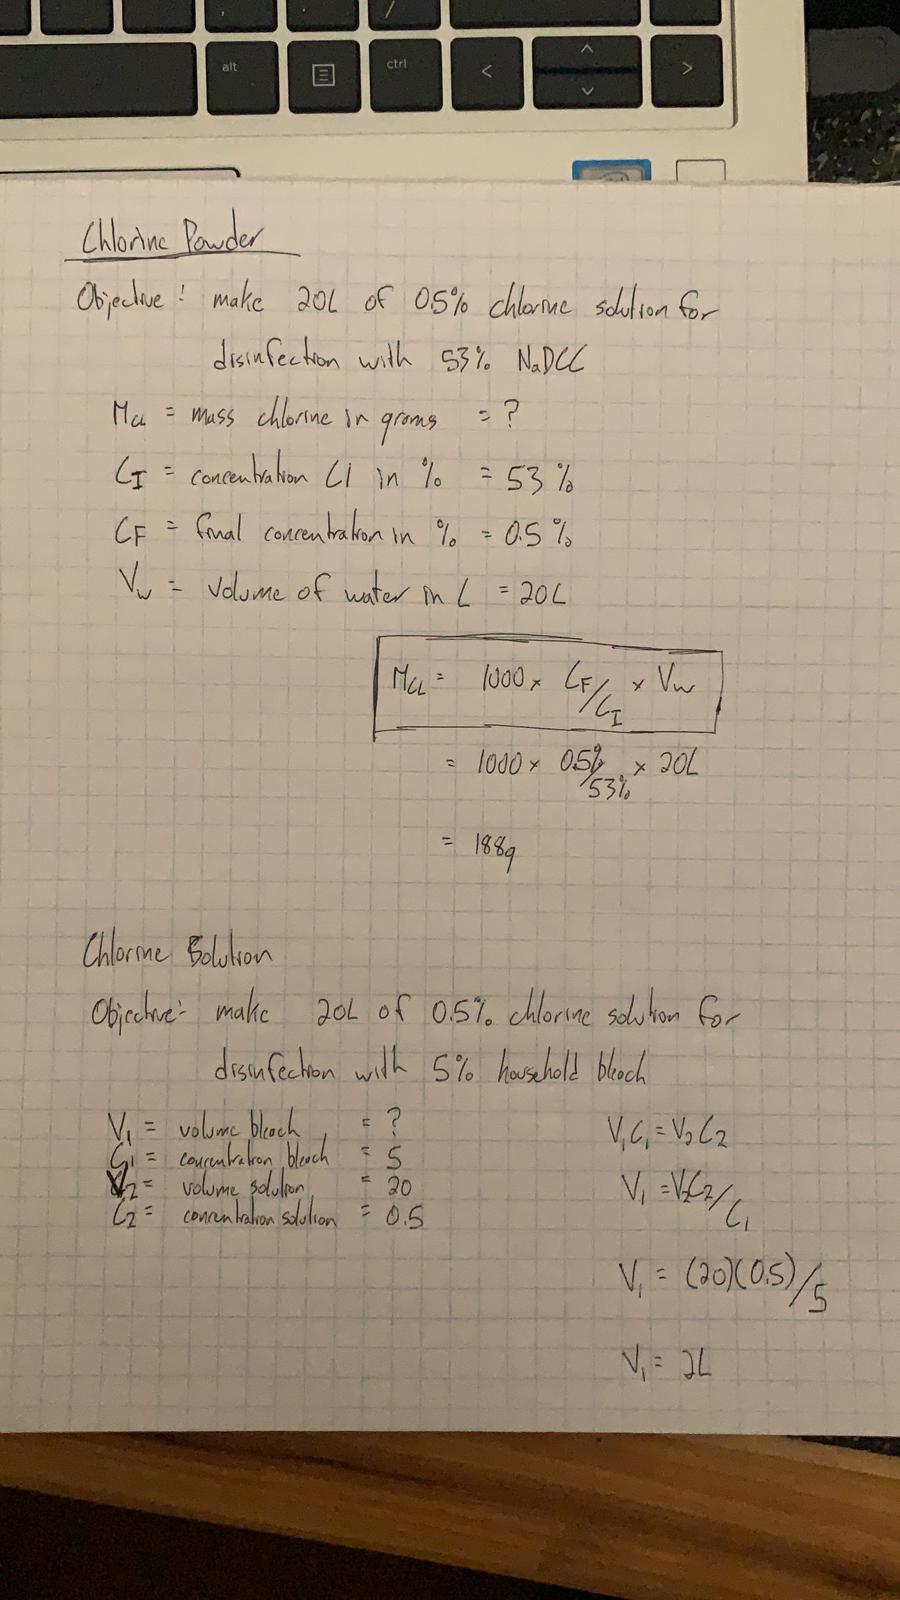 alt
ctrl
<
^
v
>
/
Chlorine Powder
Objective: make 20L of 0.5% chlorine solution for
disinfection with 53% NaDCC
MCL = mass chlorine in grams = ?
CI = concentration Cl in % = 53%
CF = final concentration in % = 0.5%
Vw = volume of water in L = 20L
MCL = 1000 x CF/CI x Vw
= 1000 x 0.5%/53% x 20L
= 188g
Chlorine Solution
Objective: make 20L of 0.5% chlorine solution for
disinfection with 5% household bleach
V1 = volume bleach = ?
C1 = concentration bleach = 5
V2 = volume solution = 20
C2 = concentration solution = 0.5
V1C1 = V2C2
V1 = V2C2/C1
V1 = (20)(0.5)/5
V1 = 2L